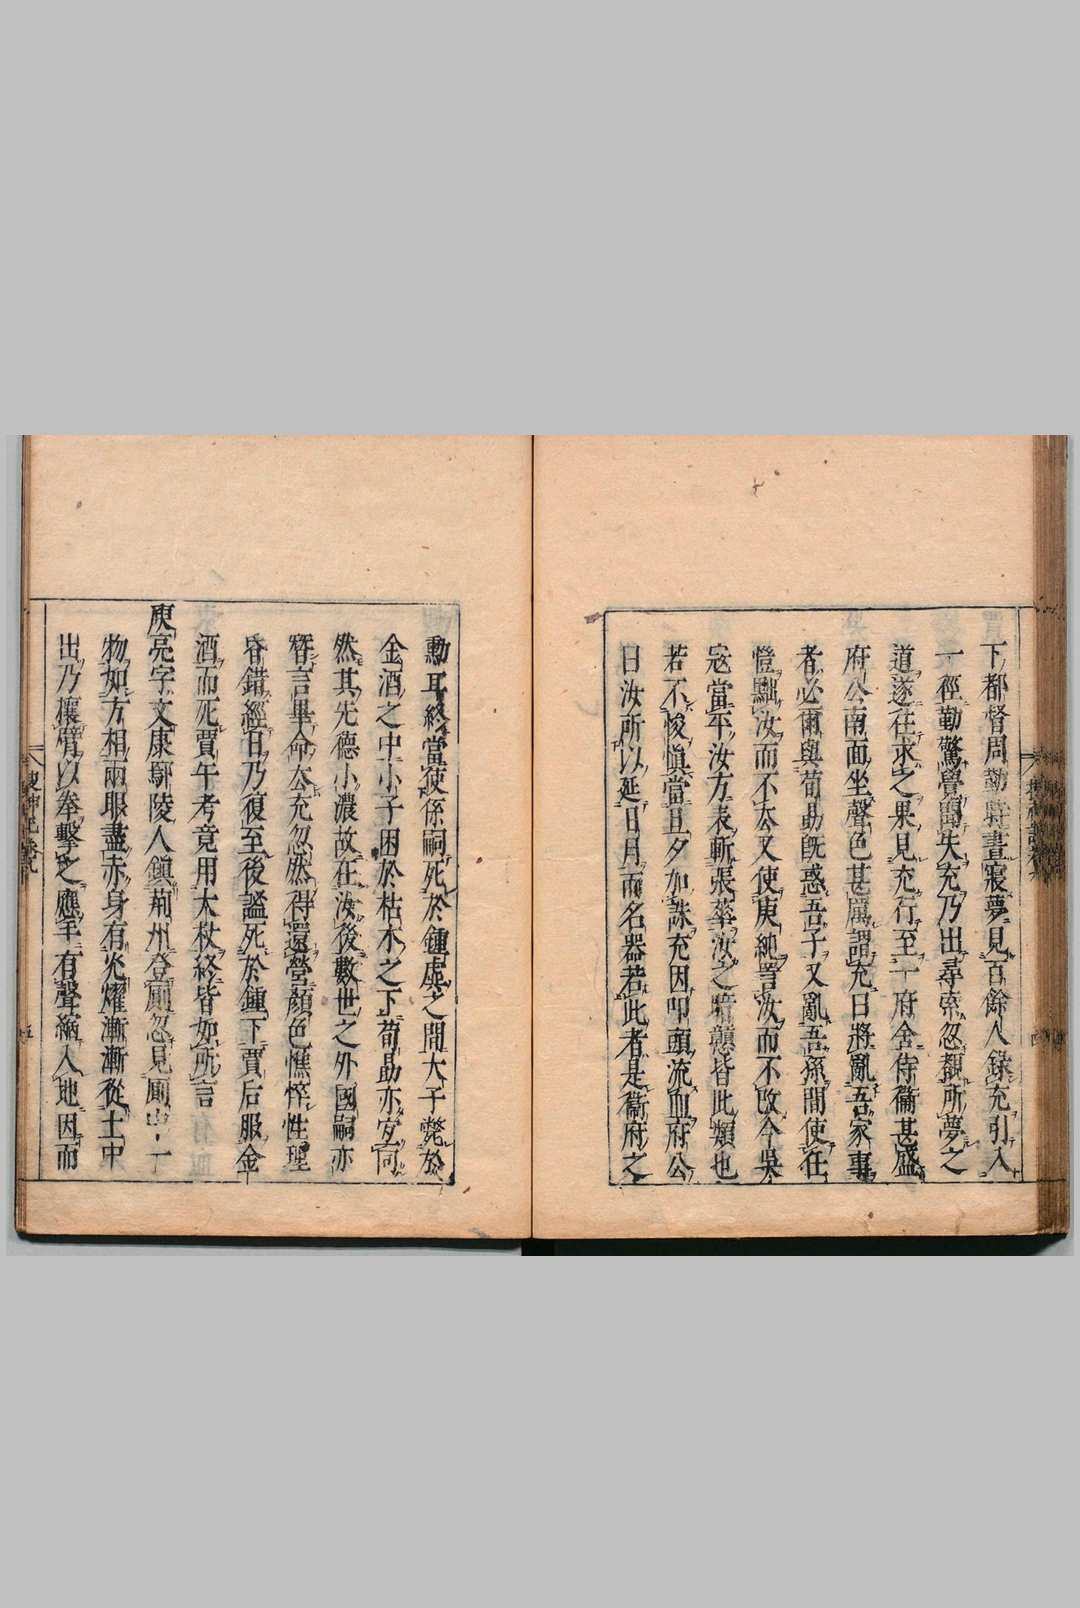 下都督周勤時晝寢夢見百餘人錄充引入
一徑勤驚覺聞失充乃出尋索忽覩所夢之
道遂往求之果見充行至一府舍侍衞甚盛
府公南面坐聲色甚厲謂充曰將亂吾家事
者必爾與荀勗旣惑吾子又亂吾孫間使任
愷黜汝而不去又使庾純詈汝而不改今吳
寇當平汝方表斬張華汝之暗戇皆此類也
若不悛愼當旦夕加誅充因叩頭流血府公
曰汝所以延日月而名器若此者是衞府之
勳耳終當使係嗣死於鍾虡之間大子斃於
金酒之中小子困於枯木之下荀勗亦宜同
然其先德小濃故在汝後數世之外國嗣亦
替言畢命去充忽然得還營顏色憔悴性理
昏錯經日乃復至後謐死於鍾下賈后服金
酒而死賈午考竟用大杖終皆如所言
庾亮字文康鄢陵人鎮荊州登廁忽見廁中一
物如方相兩眼盡赤身有光耀漸漸從土中
出乃攘臂以拳擊之應手有聲縮入地因而
搜神記卷九
五